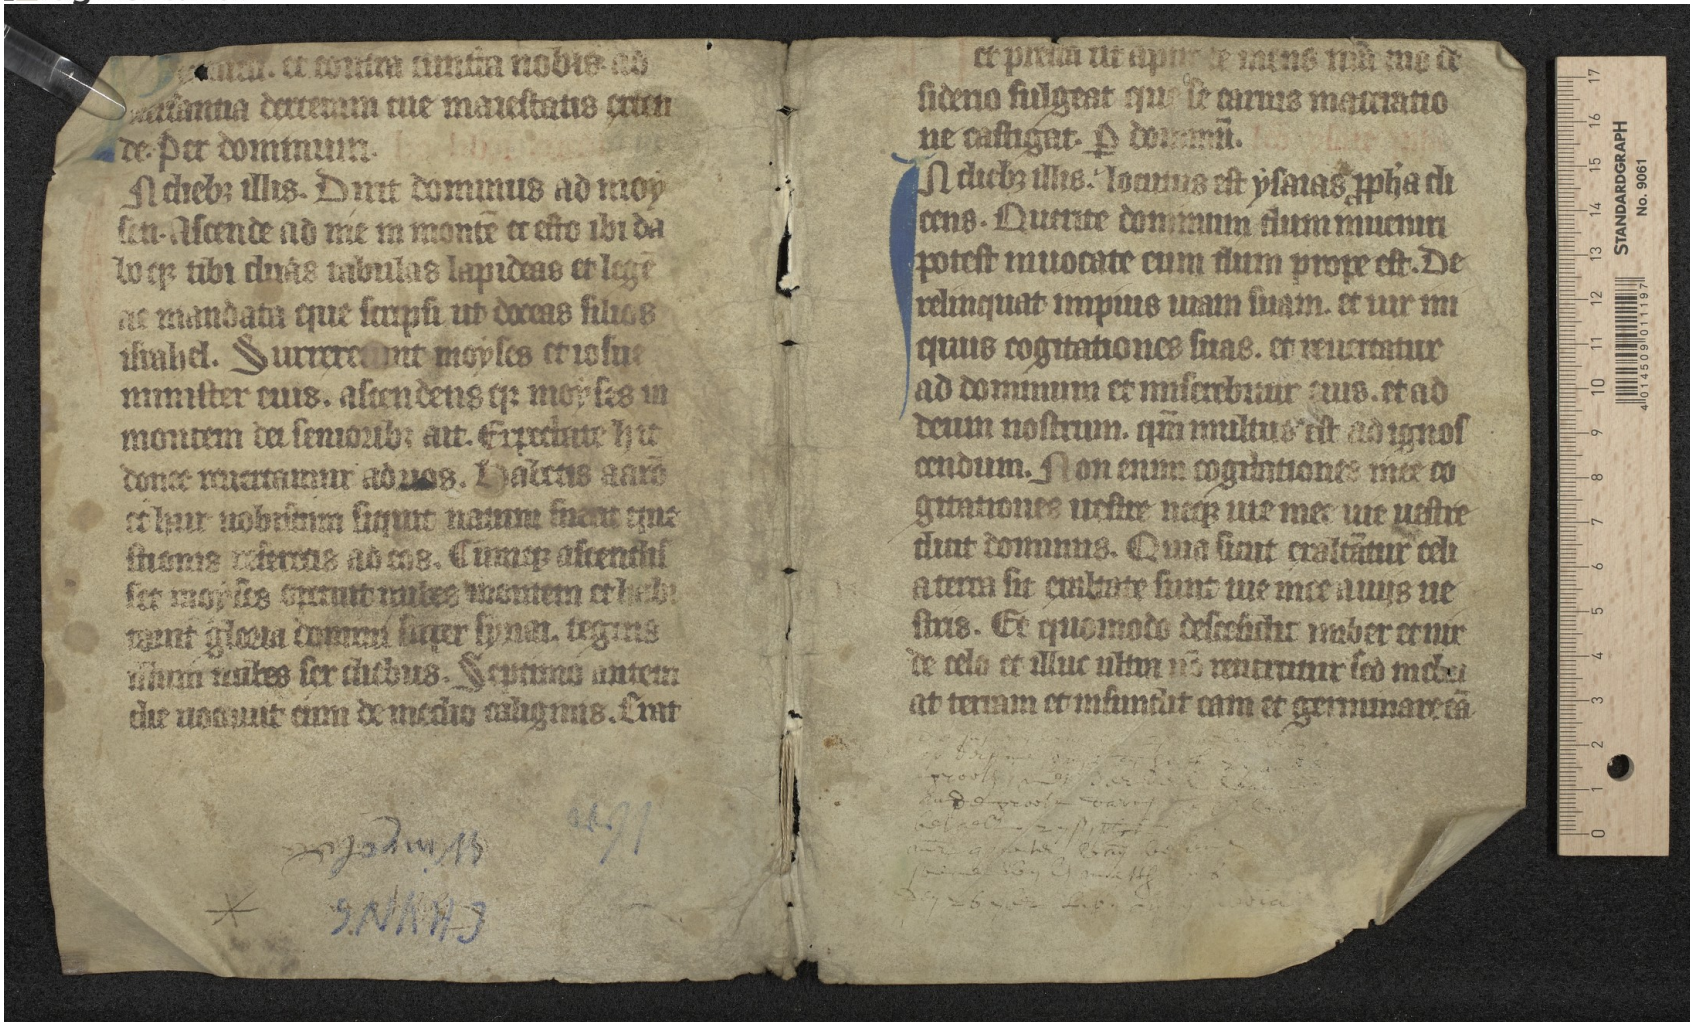 et contra cuncta nobis ad
uersantia dexteram tue maiestatis exten
de. Per dominum.
In diebꝫ illis. Dixit dominus ad moy
sen. Ascende ad me in montē et esto ibi da
boqꝫ tibi duas tabulas lapideas et legē
ac mandata que scripsi ut doceas filios
israhel. Surrexerunt moyses et iosue
minister eius. ascendensqꝫ moyses in
montem dei senioribꝫ ait. Expectate hic
donec reuertamur ad uos. Habetis aarō
et hur uobiscum siquid natum fuerit que
stionis referetis ad eos. Cumqꝫ ascendis
set moyses operuit nubes montem et habi
tauit gloria domini super synai. tegens
illum nubes sex diebus. Septimo autem
die uocauit eum de medio caliginis. Erat
et presta ut apud te mens nr̄a tuo de
siderio fulgeat que se carnis maceratio
ne castigat. P̱ dominū.
In diebꝫ illis. Locutus est ysaias ꝓpha di
cens. Querite dominum dum inueniri
potest inuocate eum dum prope est. De
relinquat impius uiam suam. et uir ini
quus cogitationes suas. et reuertatur
ad dominum et miserebitur eius. et ad
deum nostrum. qm̄ multus est ad ignos
cendum. Non enim cogitationes mee co
gitationes uestre neqꝫ uie mee uie uestre
dicit dominus. Quia sicut exaltātur celi
a terra sic exaltate sunt uie mee a uijs ue
stris. Et quomodo descendit imber et nix
de celo et illuc ultra nō reuertitur sed inebri
at terram et infundit eam et germinare eā